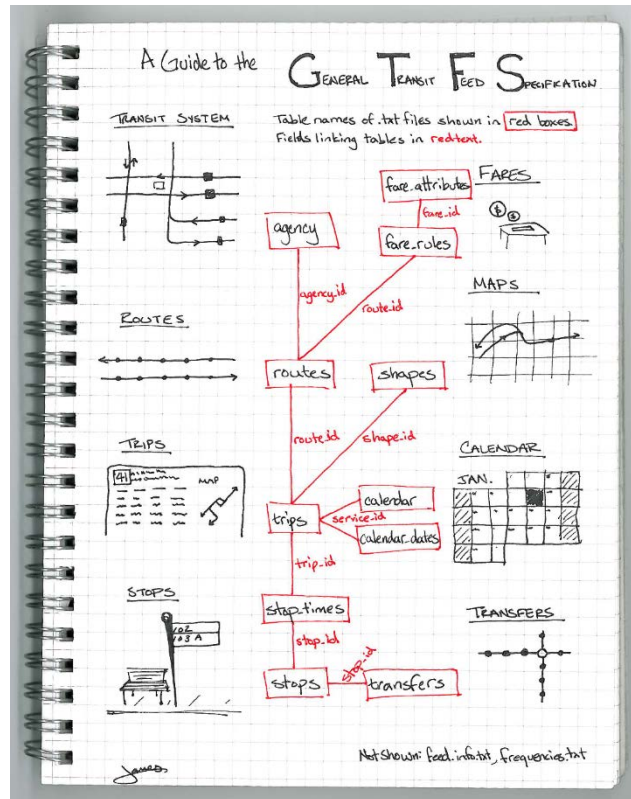 A Guide to the GENERAL TRANSIT FEED SPECIFICATION
TRANSIT SYSTEM
Table names of .txt files shown in red boxes.
Fields linking tables in red text.
fare_attributes
FARES
$ $
fare_id
agency
fare_rules
agency_id
route_id
MAPS
ROUTES
routes
shapes
route_id
shape_id
TRIPS
41
MAP
CALENDAR
JAN.
calendar
trips
service_id
calendar_dates
trip_id
STOPS
102
103 A
stop_times
TRANSFERS
stop_id
stops
stop_id
transfers
Not Shown: feed_info.txt, frequencies.txt
James